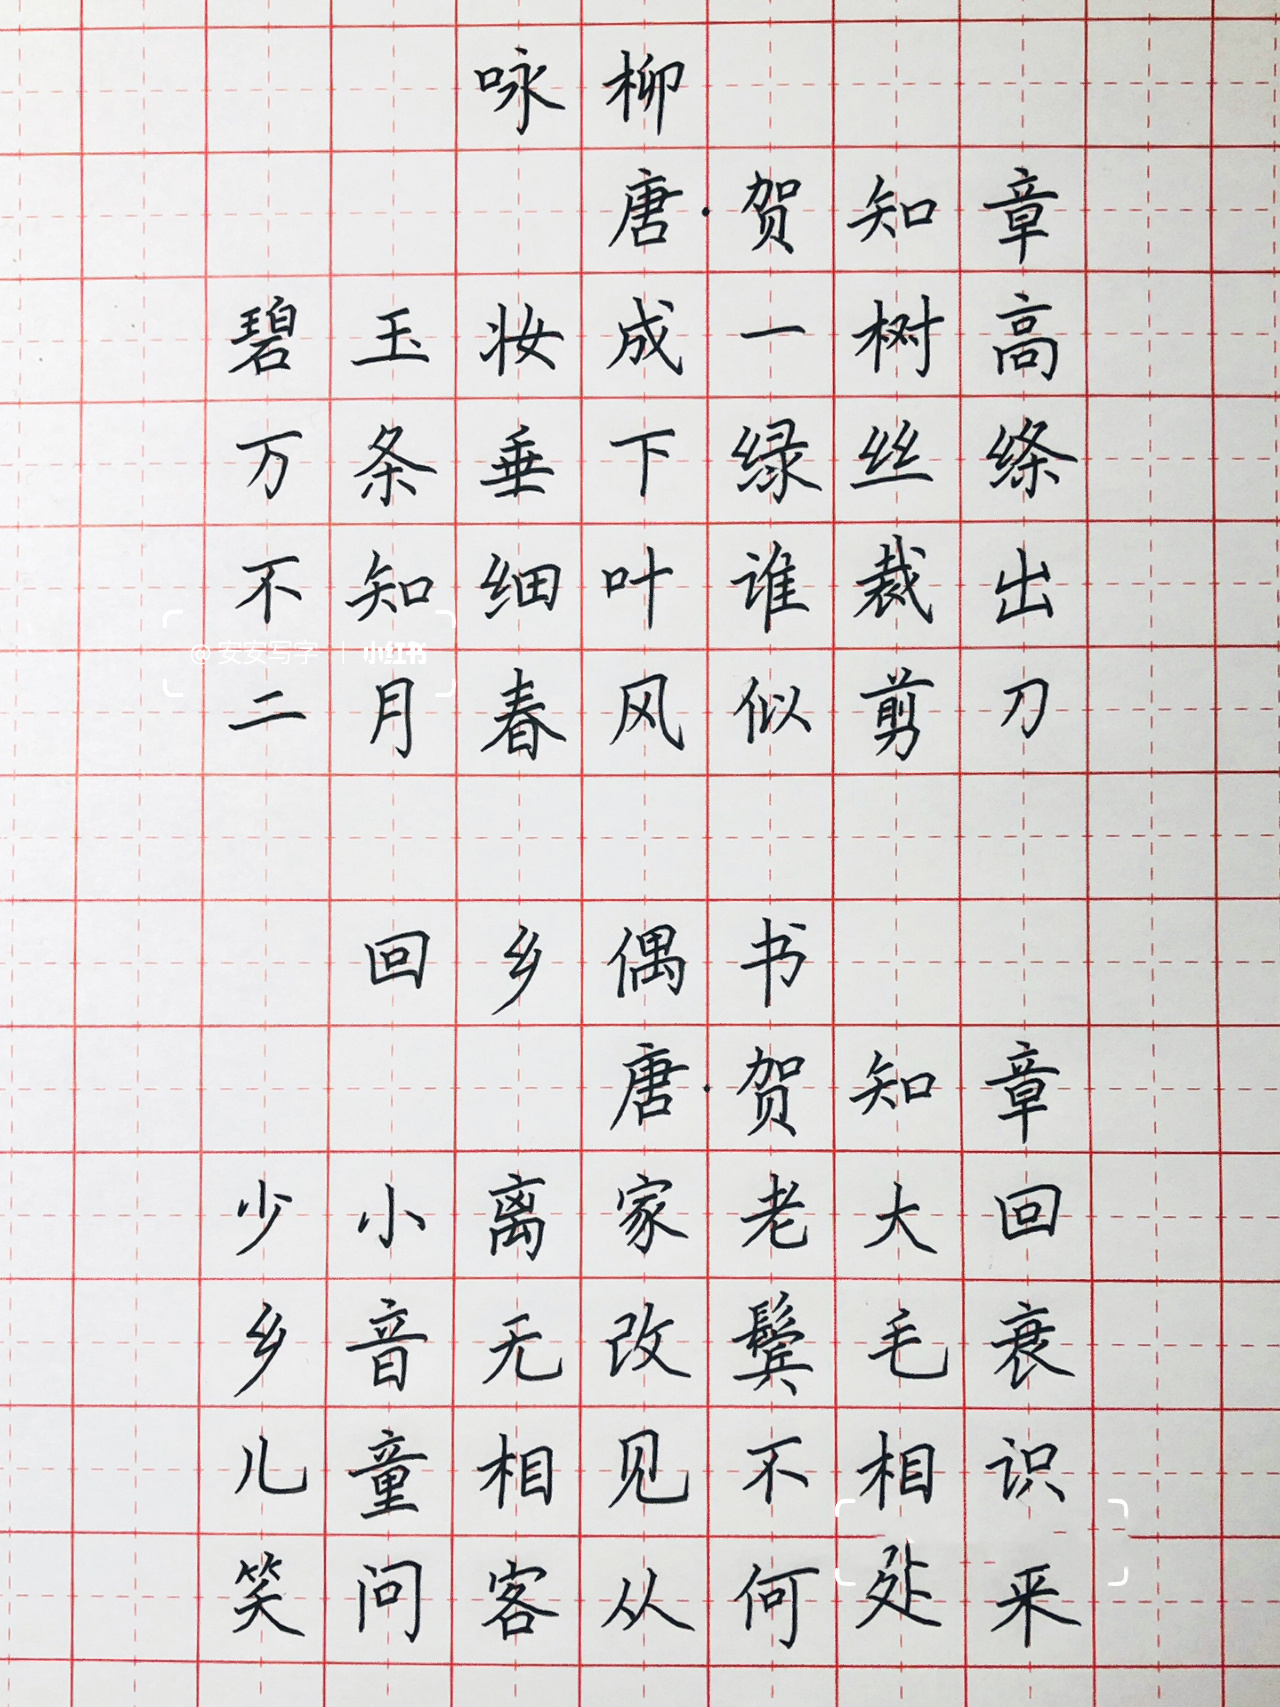 咏柳
唐·贺知章
碧玉妆成一树高
万条垂下绿丝绦
不知细叶谁裁出
@安安写字 | 小红书
二月春风似剪刀
回乡偶书
唐·贺知章
少小离家老大回
乡音无改鬓毛衰
儿童相见不相识
笑问客从何处来